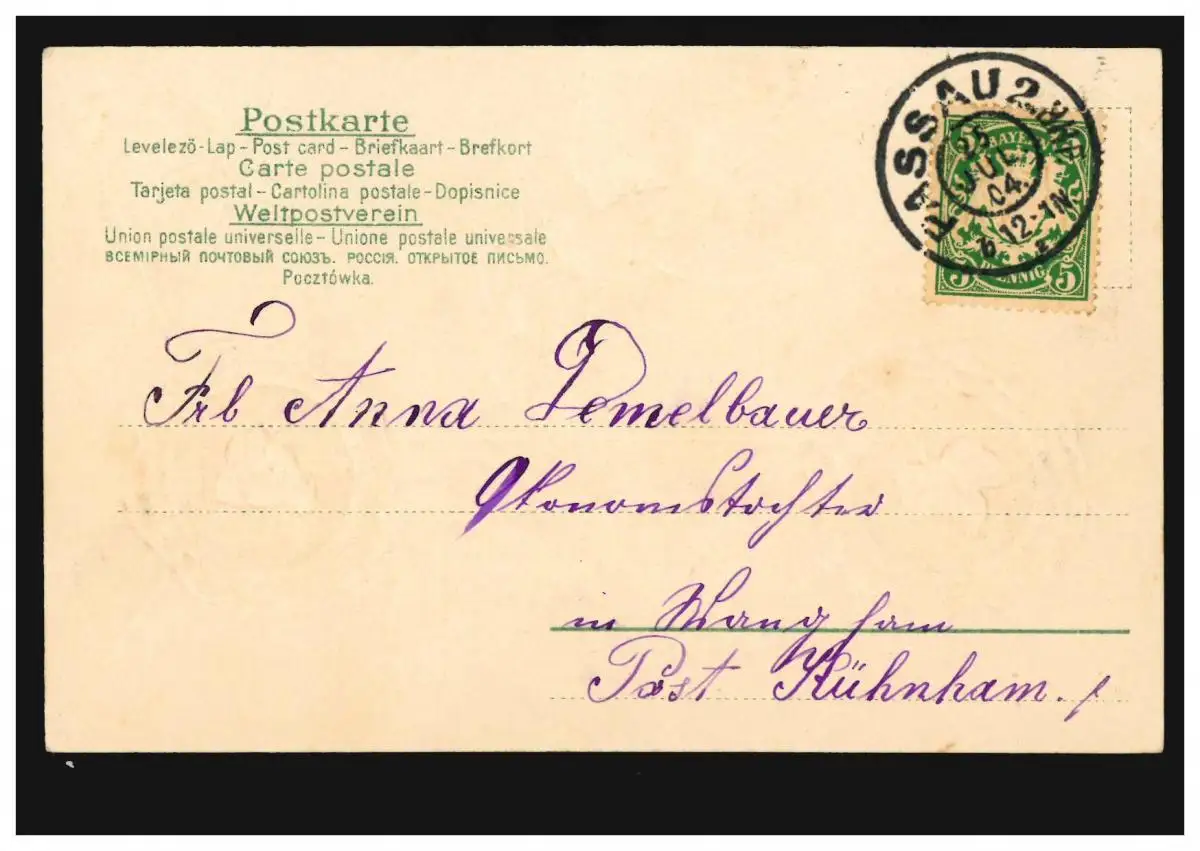 Postkarte
Levelező-Lap – Post card – Briefkaart – Brefkort
Carte postale
Tarjeta postal – Cartolina postale – Dopisnice
Weltpostverein
Union postale universelle – Unione postale universale
ВСЕМІРНЫЙ ПОЧТОВЫЙ СОЮЗЪ. РОССІЯ. ОТКРЫТОЕ ПИСЬМО.
Pocztówka.
PASSAU 2
25
JUL
04.
12-1N
BAYERN
5 PFENNIG 5
Frl Anna Demelbauer
Ökonomstochter
in Wangham
Post Kühnham.